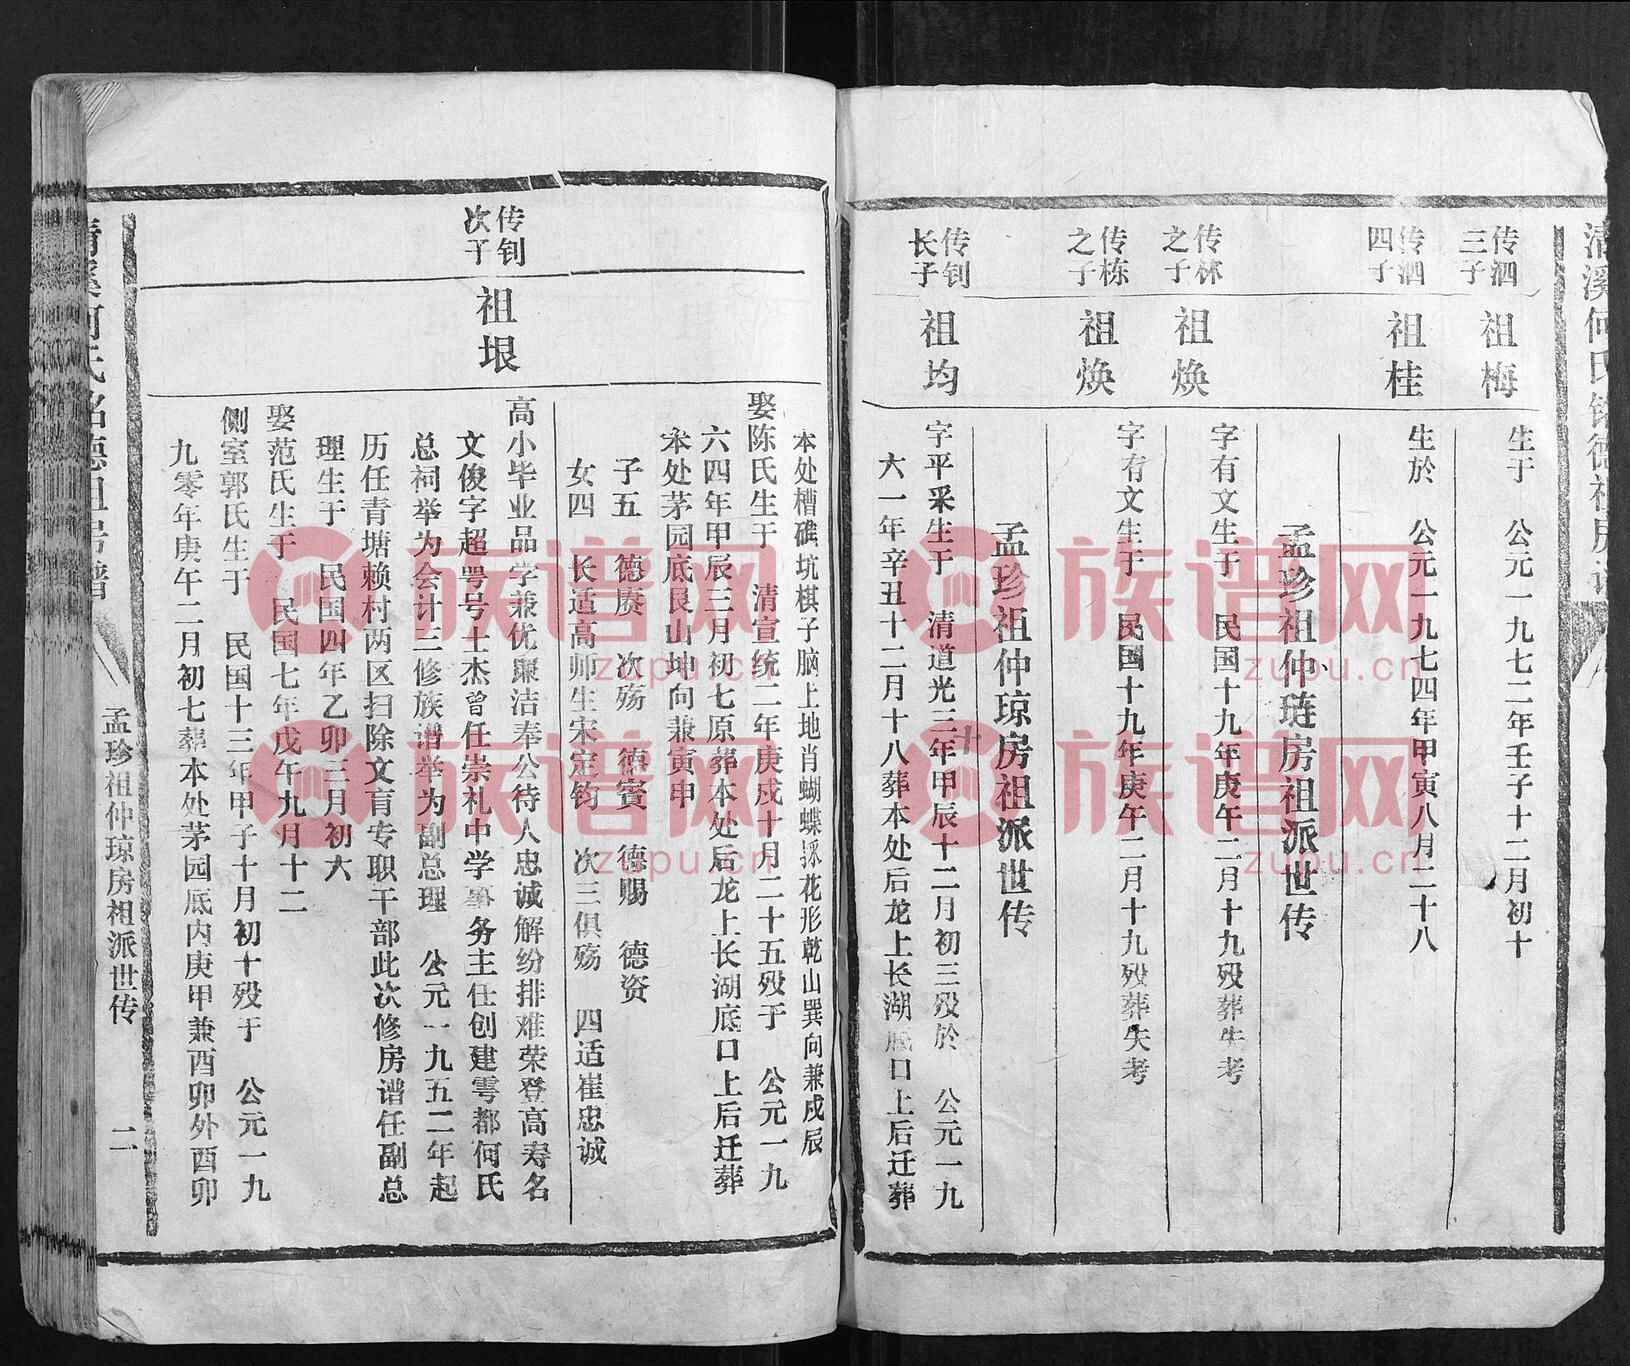 传泗三子
祖梅
生于 公元一九七二年壬子十二月初十
传泗四子
祖桂
生於 公元一九七四年甲寅八月二十八
孟珍祖仲琏房祖派世传
传林之子
祖焕
字有文生于 民国十九年庚午二月十九殁葬失考
传栋之子
祖焕
字有文生于 民国十九年庚午二月十九殁葬失考
孟珍祖仲琼房祖派世传
传钊长子
祖均
字平采生于 清道光二十年甲辰十二月初三殁於 公元一九
六一年辛丑十二月十八葬本处后龙上长湖底口上后迁葬
本处槽礁坑棋子脑上地肖蝴蝶採花形乾山巽向兼戌辰
娶陈氏生于 清宣统二年庚戌十月二十五殁于 公元一九
六四年甲辰三月初七原葬本处后龙上长湖底口上后迁葬
本处茅园底艮山坤向兼寅申
子五 德赓 次殇 德宾 德赐 德资
女四 长适高师生宋定钧 次三俱殇 四适崔忠诚
传钊次子
祖垠
高小毕业品学兼优廉洁奉公待人忠诚解纷排难荣登高寿名
文俊字超咢号士杰曾任崇礼中学事务主任创建雩都何氏
总祠举为会计三修族谱举为副总理 公元一九五二年起
历任青塘赖村两区扫除文盲专职干部此次修房谱任副总
理生于 民国四年乙卯三月初六
娶范氏生于 民国七年戊午九月十二
侧室郭氏生于 民国十三年甲子十月初十殁于 公元一九
九零年庚午二月初七葬本处茅园底内庚甲兼酉卯外酉卯
孟珍祖仲琼房祖派世传 二
族谱网
zupu.cn
族谱网
zupu.cn
族谱网
zupu.cn
族谱网
zupu.cn